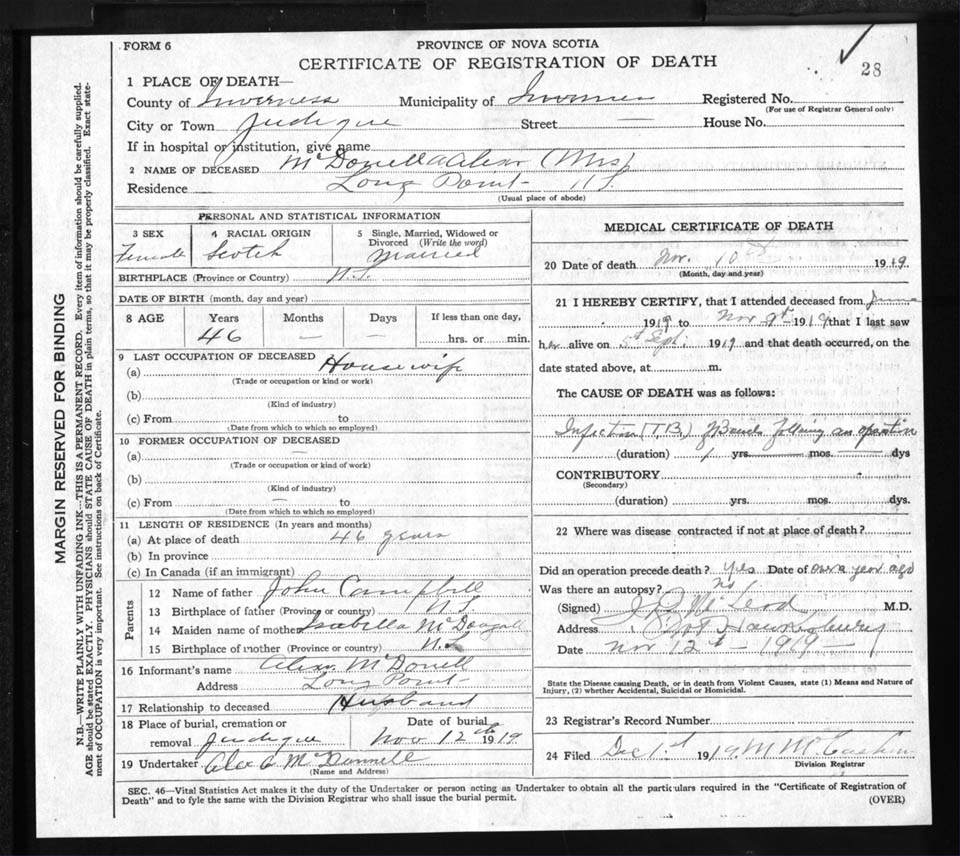 FORM 6
PROVINCE OF NOVA SCOTIA
CERTIFICATE OF REGISTRATION OF DEATH
28
1 PLACE OF DEATH—
County of Inverness Municipality of Inverness Registered No.
(For use of Registrar General only)
City or Town Judique Street — House No.
If in hospital or institution, give name
2 NAME OF DECEASED McDonell Alexr (Mrs)
Residence Long Point N S.
(Usual place of abode)
PERSONAL AND STATISTICAL INFORMATION
3 SEX 4 RACIAL ORIGIN 5 Single, Married, Widowed or Divorced (Write the word)
Female Scotch Married
BIRTHPLACE (Province or Country) N.S.
DATE OF BIRTH (month, day and year)
8 AGE Years Months Days If less than one day,
46 — — hrs. or min.
9 LAST OCCUPATION OF DECEASED
(a) Housewife
(Trade or occupation or kind or work)
(b)
(Kind of industry)
(c) From to
(Date from which to which so employed)
10 FORMER OCCUPATION OF DECEASED
(a) —
(Trade or occupation or kind of work)
(b)
(Kind of industry)
(c) From — to
(Date from which to which so employed)
11 LENGTH OF RESIDENCE (In years and months)
(a) At place of death 46 years
(b) In province
(c) In Canada (if an immigrant)
Parents
12 Name of father John Campbell
13 Birthplace of father (Province or country) N.S.
14 Maiden name of mother Isabella McDougall
15 Birthplace of mother (Province or country) N.S.
16 Informant's name Alexr McDonell
Address Long Point
17 Relationship to deceased Husband
18 Place of burial, cremation or removal Judique
Date of burial Nov 12th 1919
19 Undertaker Alex McDonnell
(Name and Address)
MEDICAL CERTIFICATE OF DEATH
20 Date of death Nov. 10th 1919
(Month, day and year)
21 I HEREBY CERTIFY, that I attended deceased from June
1919 to Nov 9th 1919 that I last saw
her alive on Sept. 1919 and that death occurred, on the
date stated above, at m.
The CAUSE OF DEATH was as follows:
Infection (T.B.) of following an operation
(duration) 1 yrs. — mos. — dys
CONTRIBUTORY
(Secondary)
(duration) yrs. mos. dys.
22 Where was disease contracted if not at place of death?
Did an operation precede death? Yes Date of over a year ago
Was there an autopsy? no
(Signed) McLeod M.D.
Address Port Hawkesbury
Date Nov 12th - 1919 -
State the Disease causing Death, or in death from Violent Causes, state (1) Means and Nature of
Injury, (2) whether Accidental, Suicidal or Homicidal.
23 Registrar's Record Number
24 Filed Dec 1st 1919.
Division Registrar
SEC. 46—Vital Statistics Act makes it the duty of the Undertaker or person acting as Undertaker to obtain all the particulars required in the "Certificate of Registration of
Death" and to fyle the same with the Division Registrar who shall issue the burial permit.
(OVER)
MARGIN RESERVED FOR BINDING
N.B.—WRITE PLAINLY WITH UNFADING INK—THIS IS A PERMANENT RECORD. Every item of information should be carefully supplied.
AGE should be stated EXACTLY. PHYSICIANS should STATE CAUSE OF DEATH in plain terms, so that it may be properly classified. Exact state-
ment of OCCUPATION is very important. See instructions on back of Certificate.